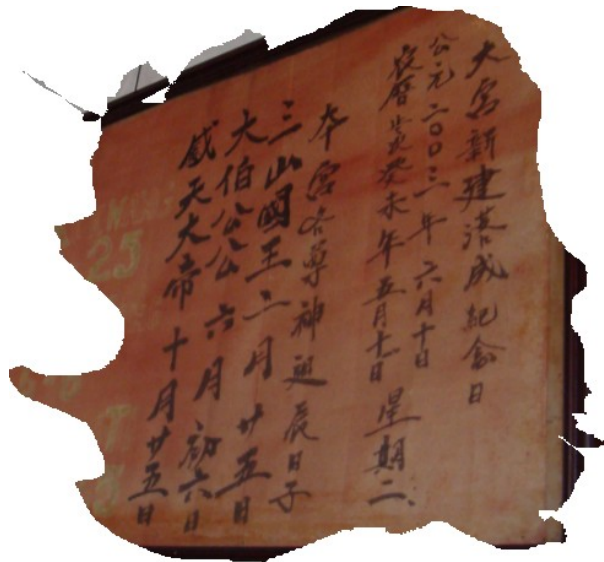 大宮新建落成紀念日
公元二00三年 六月十日
農曆癸未年五月十一日 星期二
本宮各尊神誕辰日子
三山國王二月廿五日
大伯公公六月初六日
感天大帝十月廿五日
25